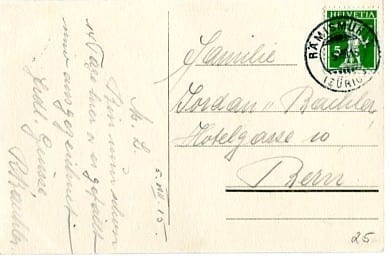 M. L.
5. VII. 15.
Bin nun schon
10 Tage hier & es gefällt
mir ausgezeichnet
Herzl. Grüsse
R. Bachler.
HELVETIA
RÄMISMÜHLE
(ZÜRICH)
Familie
Jordan Bachler
Hotelgasse 10
Bern
25.